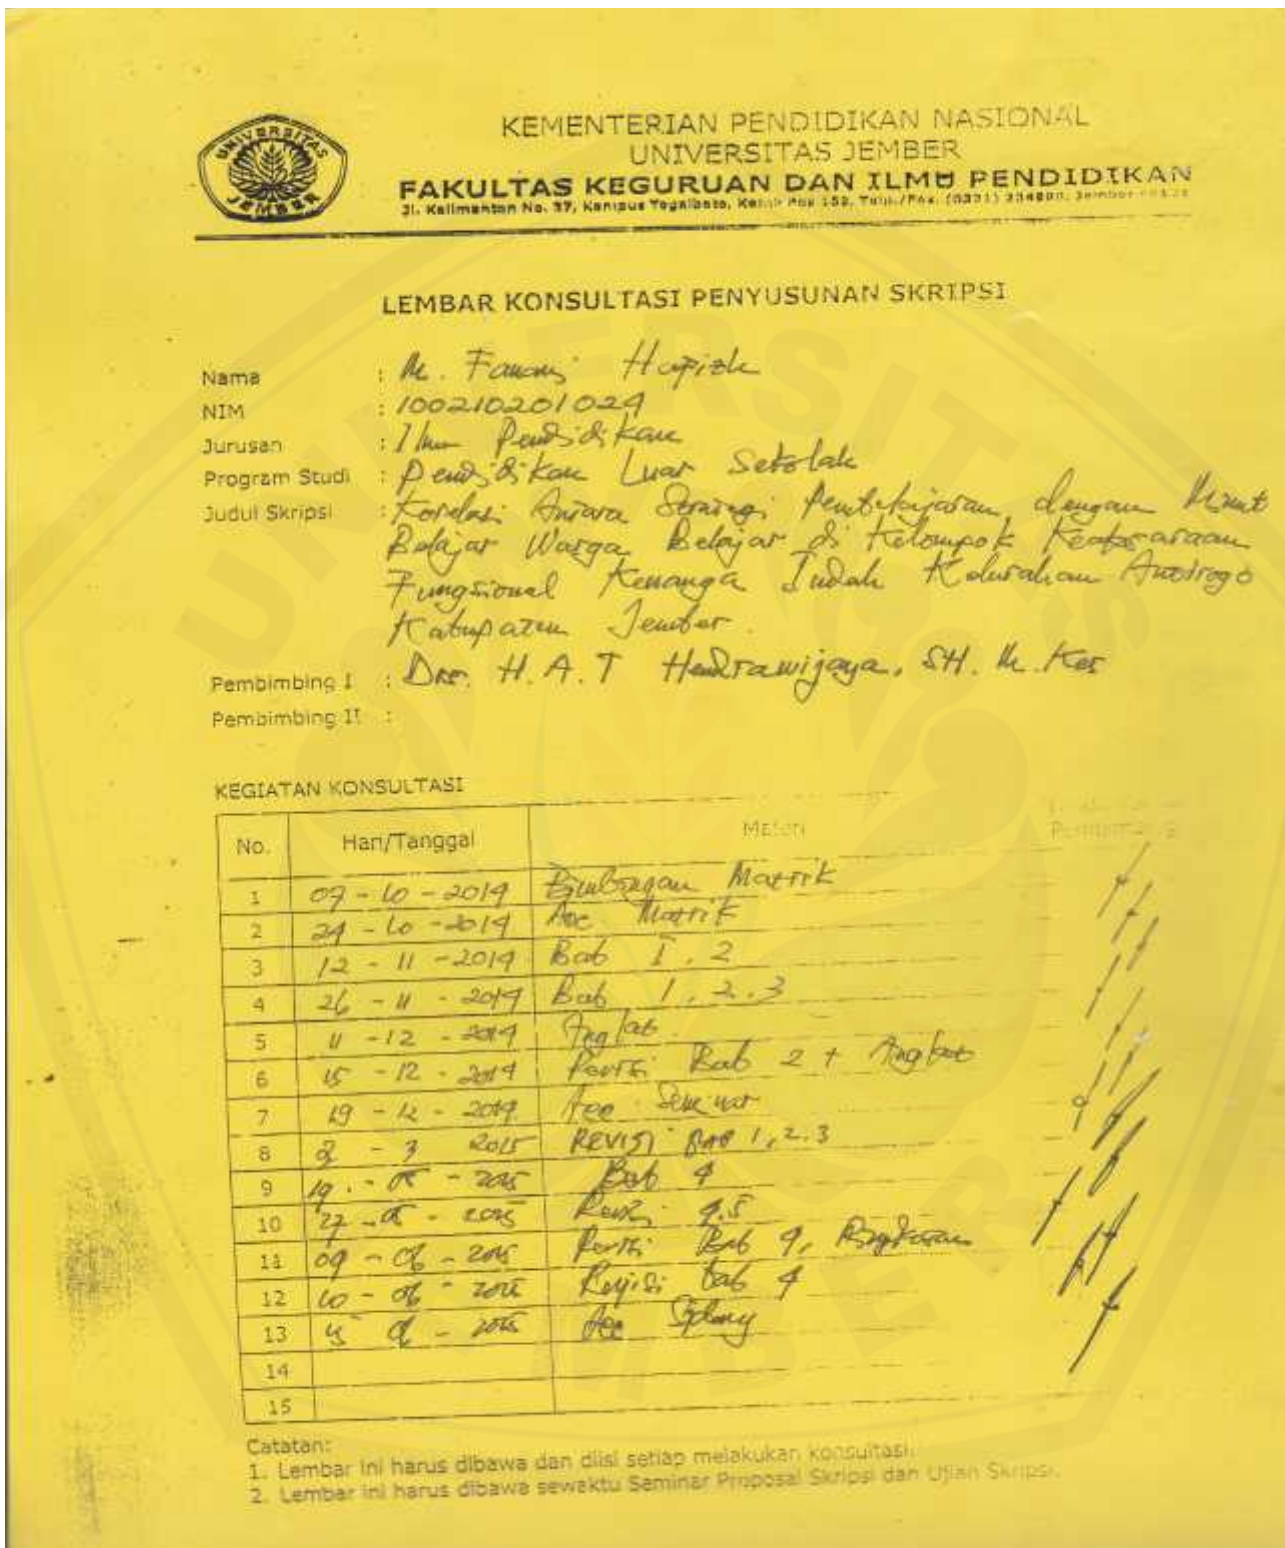 UNIVERSITAS
JEMBER
KEMENTERIAN PENDIDIKAN NASIONAL
UNIVERSITAS JEMBER
FAKULTAS KEGURUAN DAN ILMU PENDIDIKAN
Jl. Kalimantan No. 37, Kampus Tegalboto, Kotak Pos 159, Telp./Fax. (0331)
LEMBAR KONSULTASI PENYUSUNAN SKRIPSI
Nama : M. Fanani Hapizh
NIM : 100210201024
Jurusan : Ilmu Pendidikan
Program Studi : Pendidikan Luar Sekolah
Judul Skripsi : Korelasi Antara Strategi Pembelajaran dengan Minat
Belajar Warga Belajar di Kelompok Keaksaraan
Fungsional Kenanga Indah Kelurahan Antirogo
Kabupaten Jember
Pembimbing I : Drs. H. A. T Hendrawijaya, SH. M. Kes
Pembimbing II :
KEGIATAN KONSULTASI
No. Hari/Tanggal Materi Pembimbing
1 07 - 10 - 2014 Bimbingan Matrik
2 24 - 10 - 2014 Acc Matrik
3 12 - 11 - 2014 Bab I, 2
4 26 - 11 - 2014 Bab 1, 2, 3
5 11 - 12 - 2014
6 15 - 12 - 2014 Revisi Bab 2 +
7 19 - 12 - 2014 Acc Seminar
8 2 - 3 2015 REVISI BAB 1, 2, 3
9 19 - 05 - 2015 Bab 4
10 27 - 05 - 2015 Revisi 4.5
11 09 - 06 - 2015 Revisi Bab 4, Ringkasan
12 10 - 06 - 2015 Revisi bab 4
13 15 06 - 2015 Acc Sidang
14
15
Catatan:
1. Lembar ini harus dibawa dan diisi setiap melakukan konsultasi.
2. Lembar ini harus dibawa sewaktu Seminar Proposal Skripsi dan Ujian Skripsi.